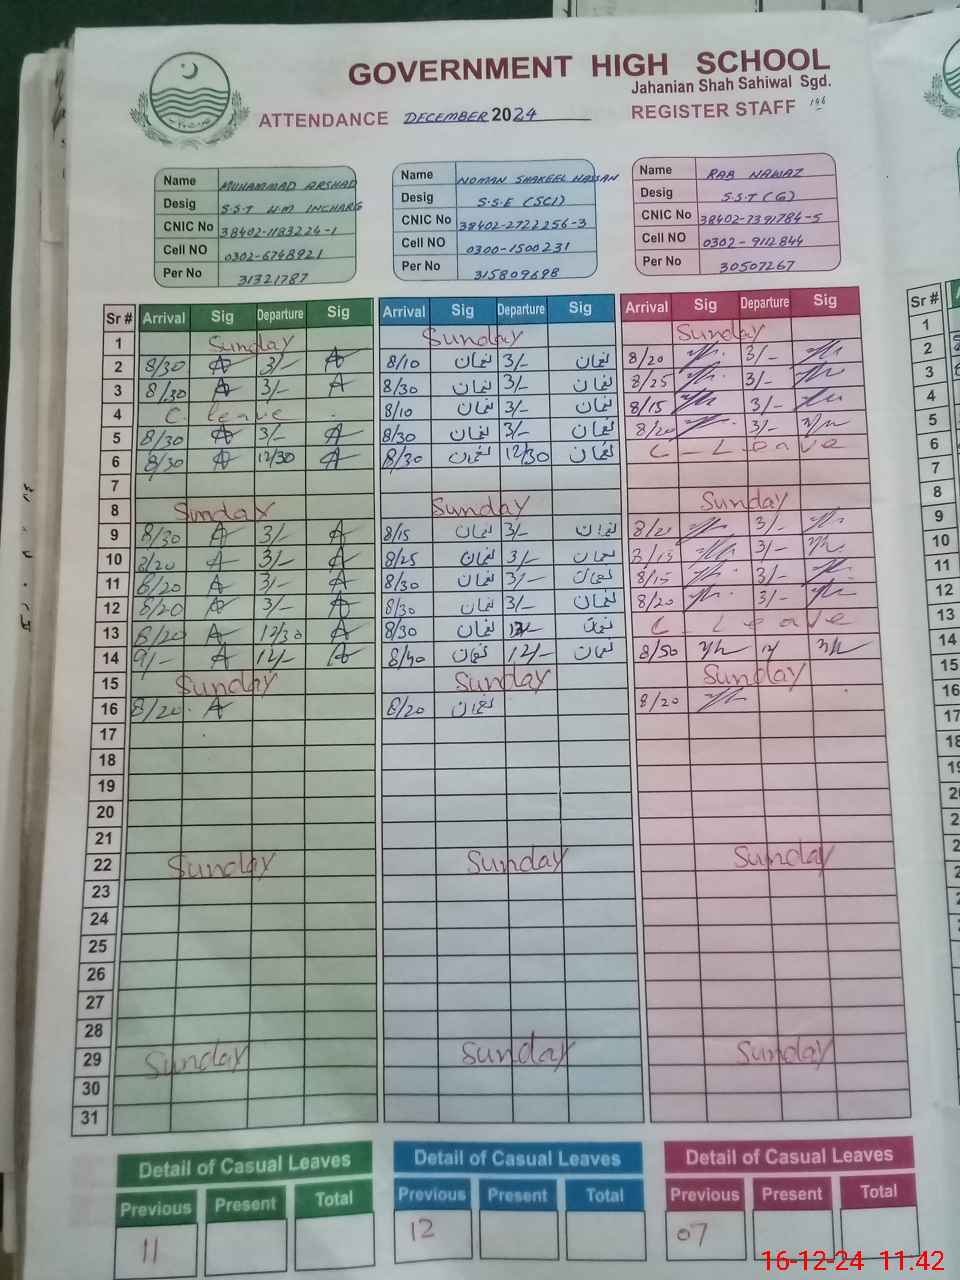 GOVERNMENT HIGH SCHOOL
Jahanian Shah Sahiwal Sgd.
ATTENDANCE DECEMBER 2024 REGISTER STAFF
Name MUHAMMAD ARSHAD
Desig S.S.T H.M INCHARG
CNIC No 38402-1183224-1
Cell NO 0302-6748921
Per No 31321787
Name NOMAN SHAKEEL HASSAN
Desig S.S.E (SCI)
CNIC No 38402-2722256-3
Cell NO 0300-1500231
Per No 315809698
Name RAB NAWAZ
Desig S.S.T (G)
CNIC No 38402-7391784-5
Cell NO 0302-9112844
Per No 30507267
Sr # Arrival Sig Departure Sig Arrival Sig Departure Sig Arrival Sig Departure Sig
1 Sunday Sunday Sunday
2 8/30 3/- 8/10 نعمان 3/- نعمان 8/20 3/-
3 8/30 3/- 8/30 نعمان 3/- نعمان 8/25 3/-
4 C. leave 8/10 نعمان 3/- نعمان 8/15 3/-
5 8/30 3/- 8/30 نعمان 3/- نعمان 8/20 3/-
6 8/30 12/30 8/30 نعمان 12/30 نعمان C-Leave
7
8 Sunday Sunday Sunday
9 8/30 3/- 8/15 نعمان 3/- نعمان 8/20 3/-
10 8/20 3/- 8/25 نعمان 3/- نعمان 8/15 3/-
11 8/20 3/- 8/30 نعمان 3/- نعمان 8/15 3/-
12 8/20 3/- 8/30 نعمان 3/- نعمان 8/20 3/-
13 8/20 12/30 8/30 نعمان نعمان C-Leave
14 9/- 12/- 8/40 نعمان 12/- نعمان 8/50
15 Sunday Sunday Sunday
16 8/20 8/20 نعمان 8/20
17
18
19
20
21
22 Sunday Sunday Sunday
23
24
25
26
27
28
29 Sunday Sunday Sunday
30
31
Detail of Casual Leaves Detail of Casual Leaves Detail of Casual Leaves
Previous Present Total Previous Present Total Previous Present Total
11 12 07
16-12-24 11.42